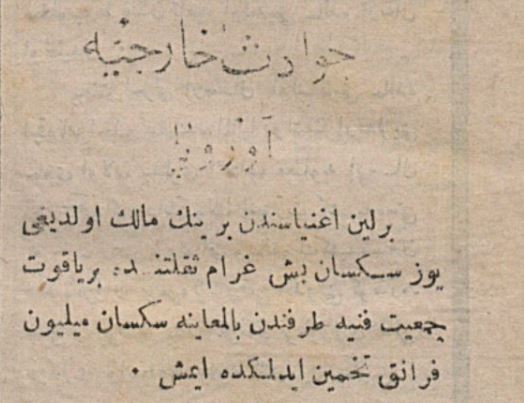 حوادث خارجیه
آوروپا
برلین اغنیاسندن برینك مالك اولدیغی
یوز سكسان بش غرام ثقلتنده بریاقوت
جمعیت فنیه طرفندن بالمعاینه سكسان میلیون
فرانق تخمین ایدلمكده ایمش ٠